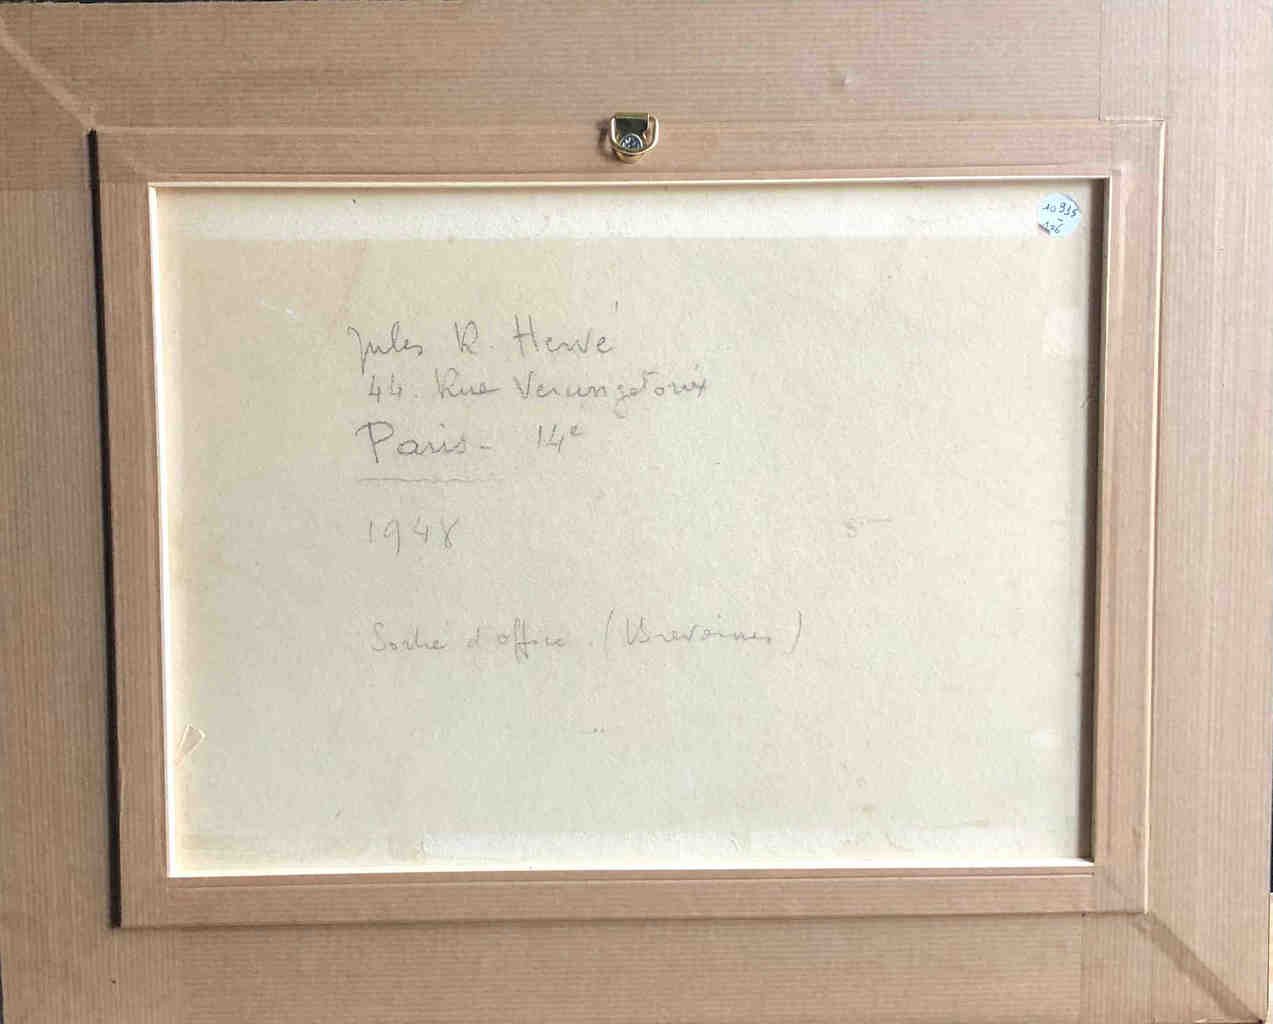 10935
Jules R. Hervé
44. Rue Vercingetorix
Paris - 14e
1948
5
Sortie d'office. (Brevoines)